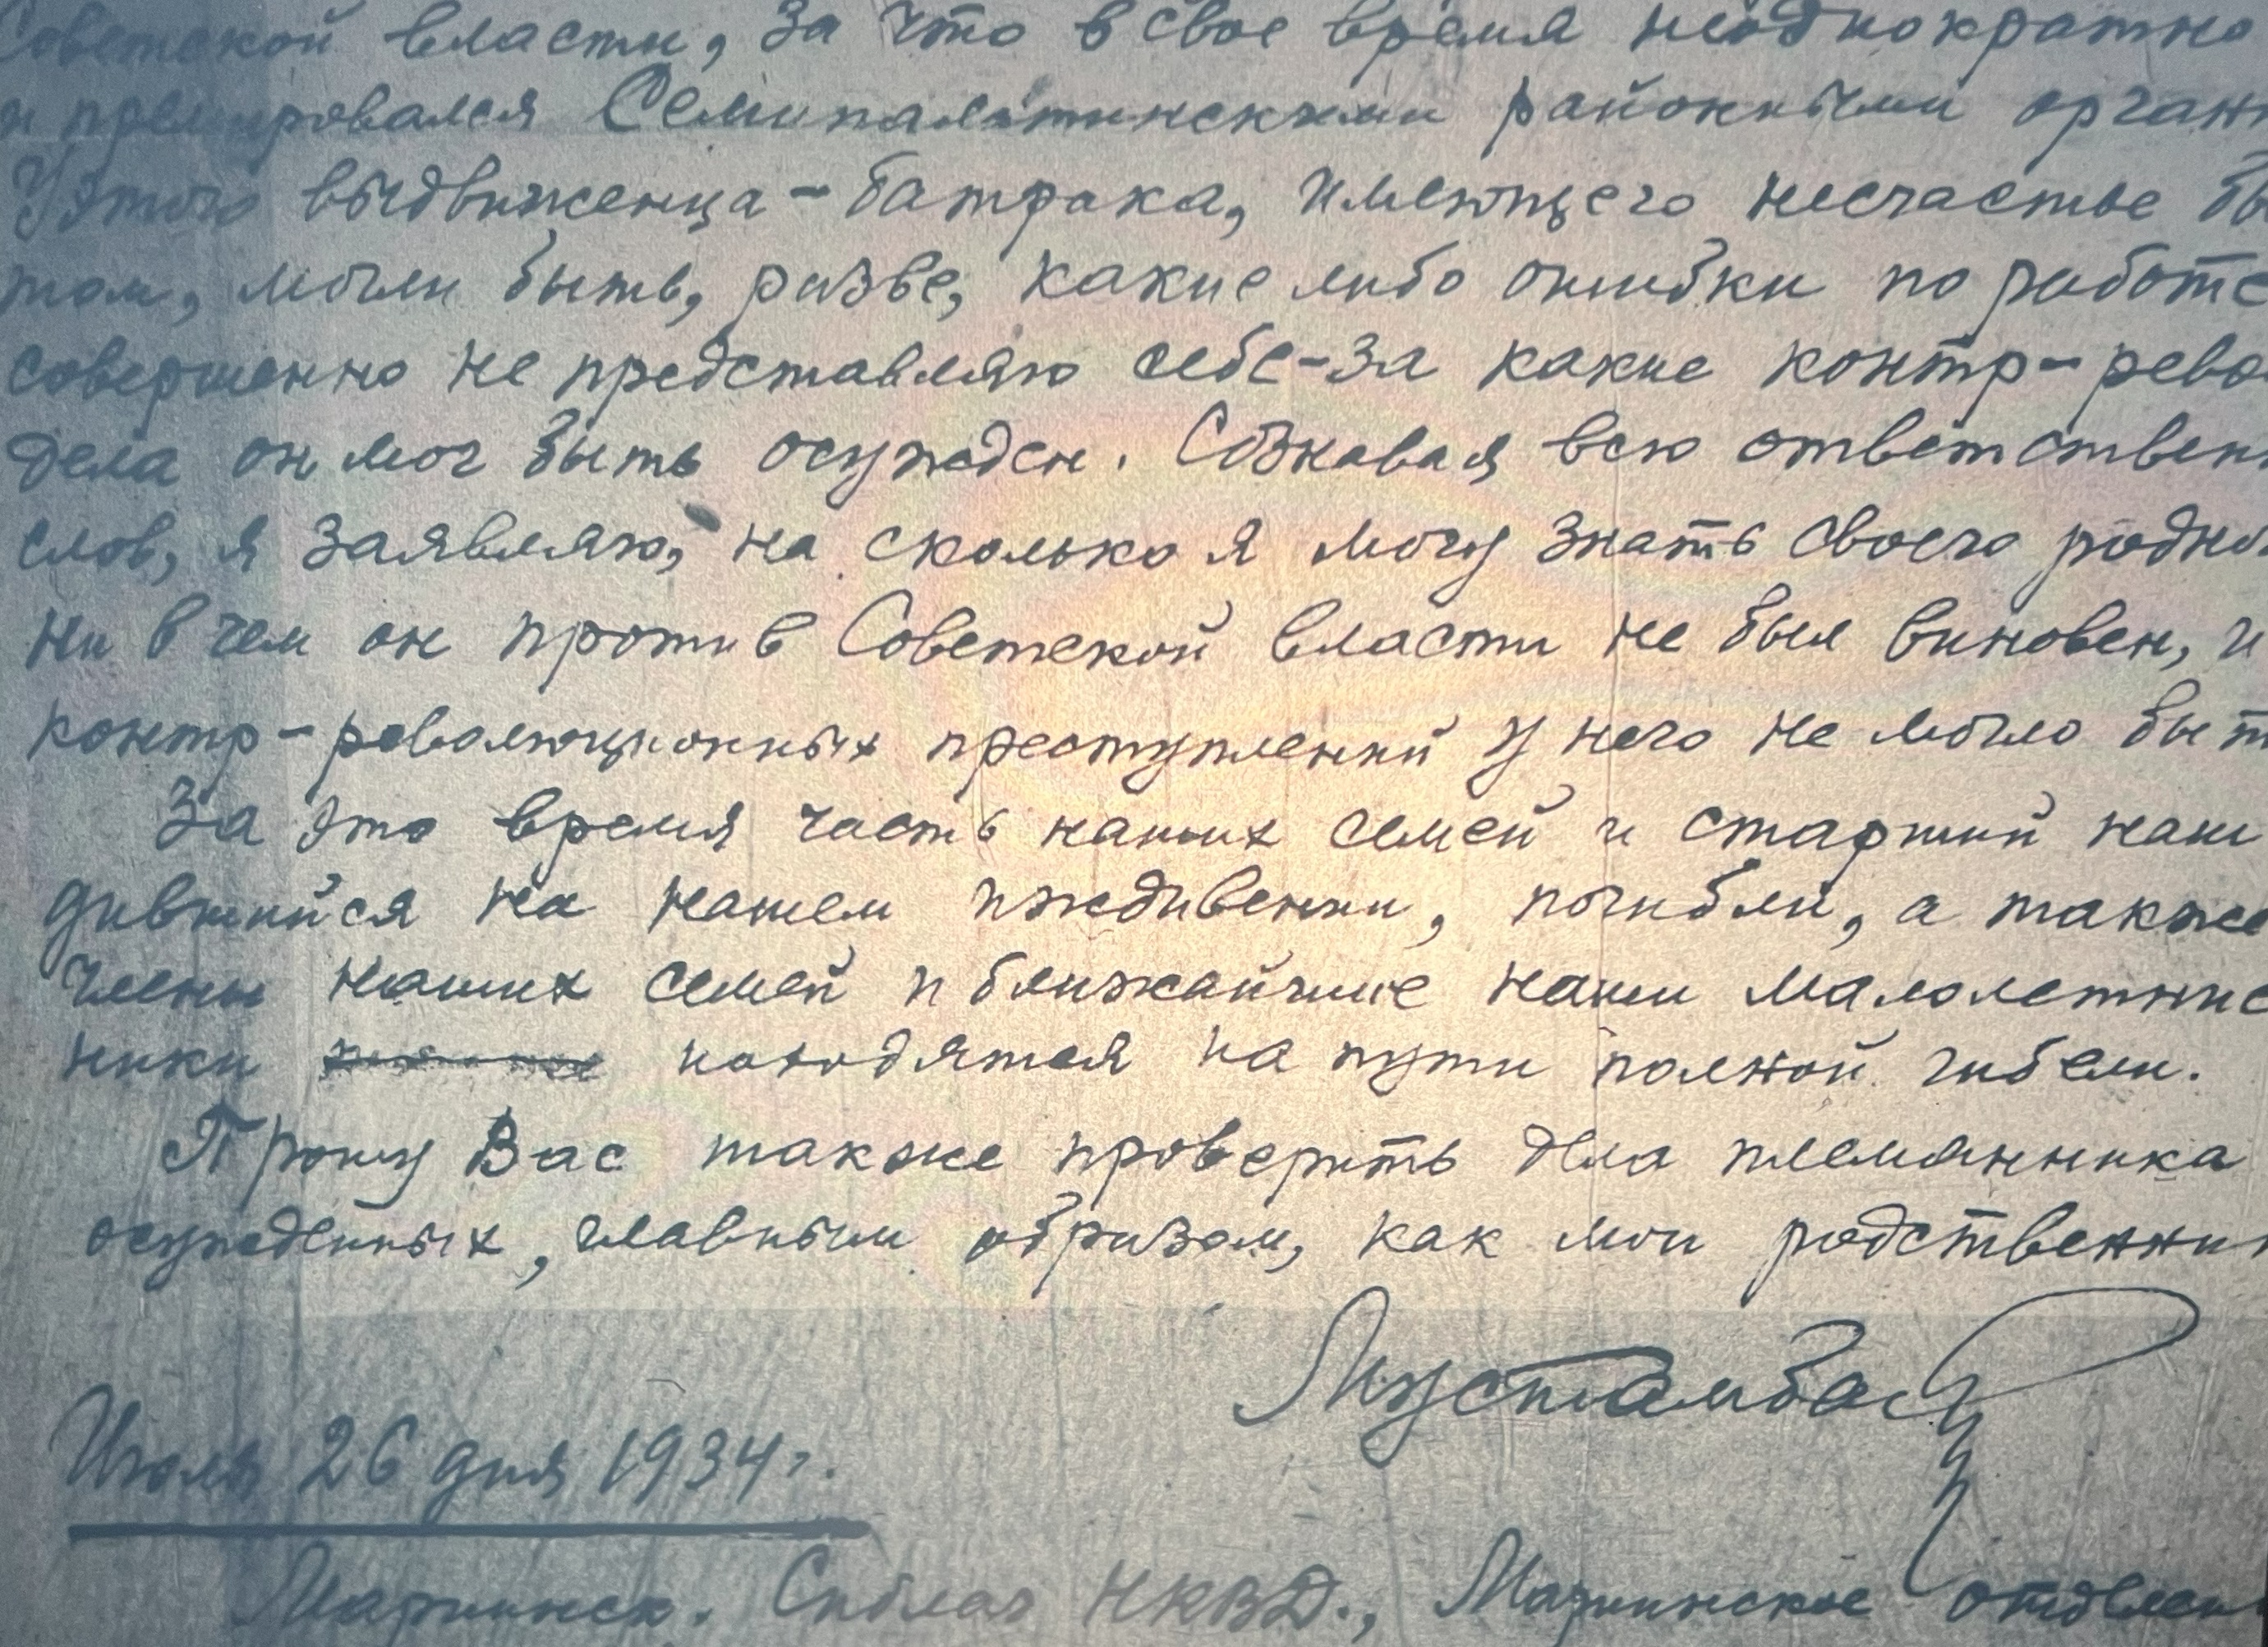 Советской власти, за что в свое время неоднократно
и премировался Семипалатинскими районными орган
У этого выдвиженца-батрака, имеющего несчастье бы
том, могли быть, разве, какие либо ошибки по работе
совершенно не представляю себе-за какие контр-рево
дела он мог быть осужден. Сознавая всю ответствен
слов, я заявляю, на сколько я могу знать своего родно
ни в чем он против Советской власти не был виновен, и
контр-революционных преступлений у него не могло быт
За это время часть наших семей и старший наш
дившийся на нашем иждивении, погибли, а также
члены наших семей и ближайшие наши малолетние
ники находятся на пути полной гибели.
Прошу Вас также проверить дела племянника
осужденных, главным образом, как мои родственни
Мустамбаев
Июля 26 дня 1934г.
Мариинск. Сиблаг НКВД., Мариинское отделен